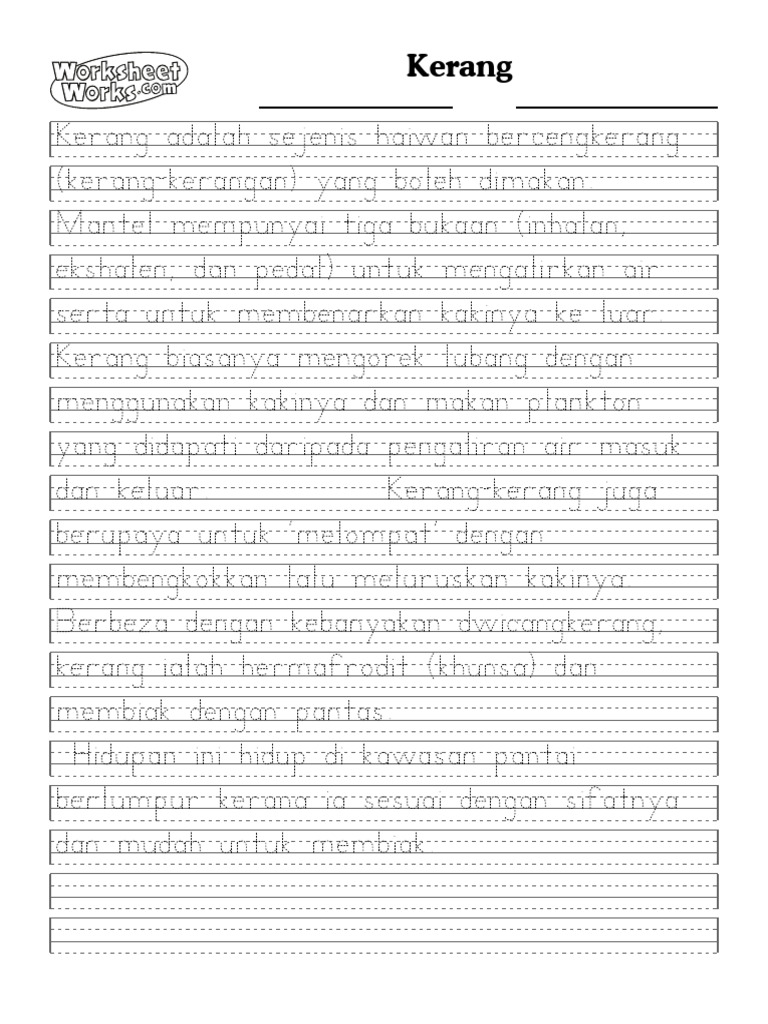 WorksheetWorks.com
Kerang
Kerang adalah sejenis haiwan bercengkerang
(kerang-kerangan) yang boleh dimakan.
Mantel mempunyai tiga bukaan (inhalan,
ekshalen, dan pedal) untuk mengalirkan air
serta untuk membenarkan kakinya ke luar.
Kerang biasanya mengorek lubang dengan
menggunakan kakinya dan makan plankton
yang didapati daripada pengaliran air masuk
dan keluar. Kerang-kerang juga
berupaya untuk 'melompat' dengan
membengkokkan lalu meluruskan kakinya.
Berbeza dengan kebanyakan dwicangkerang,
kerang ialah hermafrodit (khunsa) dan
membiak dengan pantas.
Hidupan ini hidup di kawasan pantai
berlumpur kerana ia sesuai dengan sifatnya
dan mudah untuk membiak.